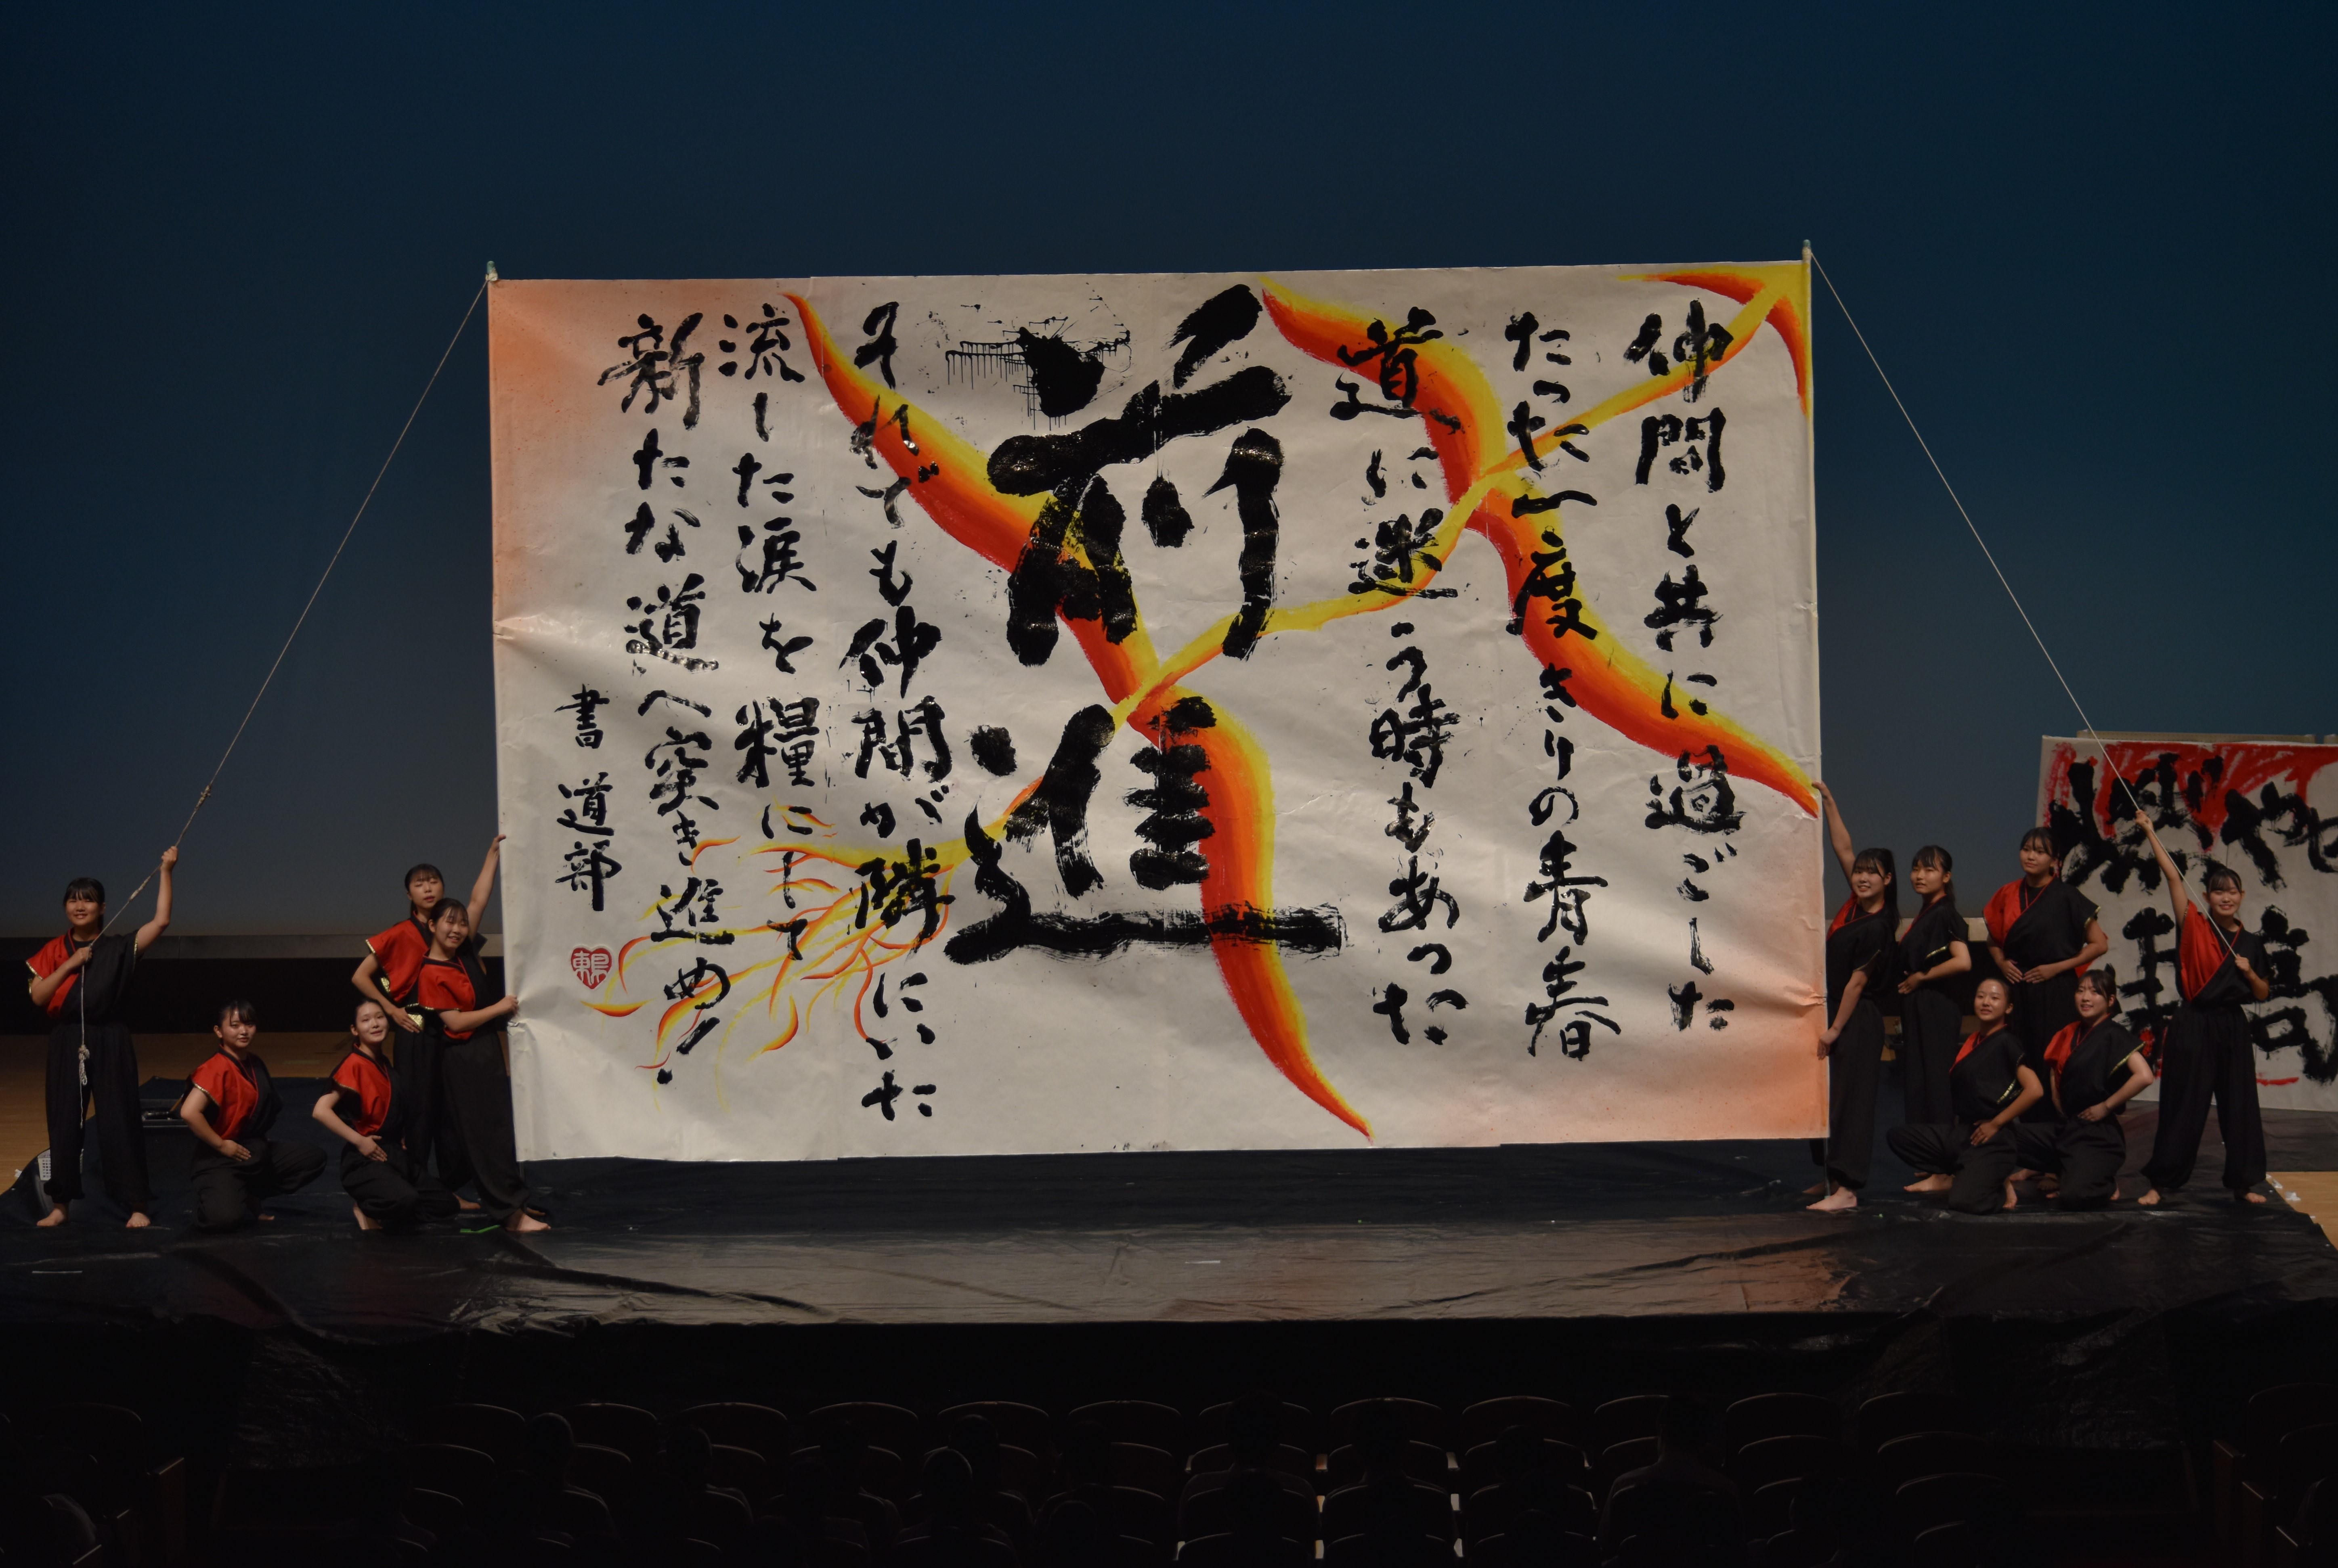 仲間と共に過ごした
たった一度きりの青春
道に迷う時もあった
前進
それでも仲間が隣にいた
流した涙を糧にして
新たな道へ突き進め!
書道部
燃やせ
高